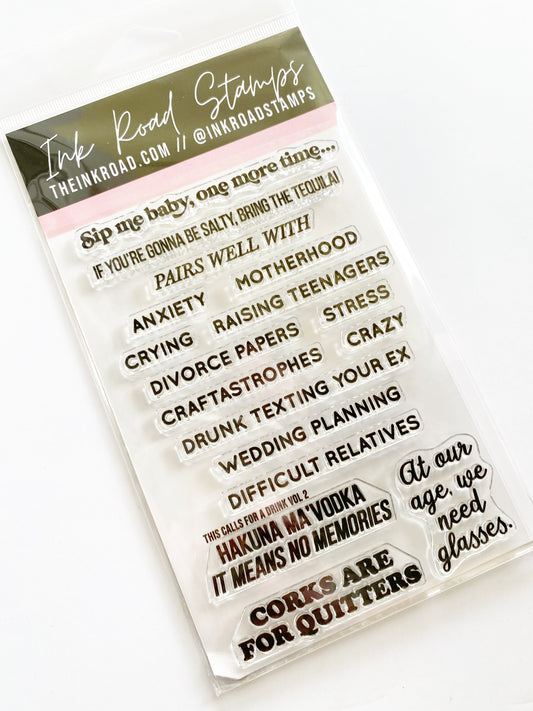 Ink Road Stamps
THEINKROAD.COM // @INKROADSTAMPS
Sip me baby, one more time...
IF YOU'RE GONNA BE SALTY, BRING THE TEQUILA!
PAIRS WELL WITH
MOTHERHOOD
ANXIETY
RAISING TEENAGERS
CRYING
STRESS
DIVORCE PAPERS
CRAZY
CRAFTASTROPHES
DRUNK TEXTING YOUR EX
WEDDING PLANNING
DIFFICULT RELATIVES
At our
age, we
need
glasses.
THIS CALLS FOR A DRINK VOL 2
HAKUNA MA'VODKA
IT MEANS NO MEMORIES
CORKS ARE
FOR QUITTERS